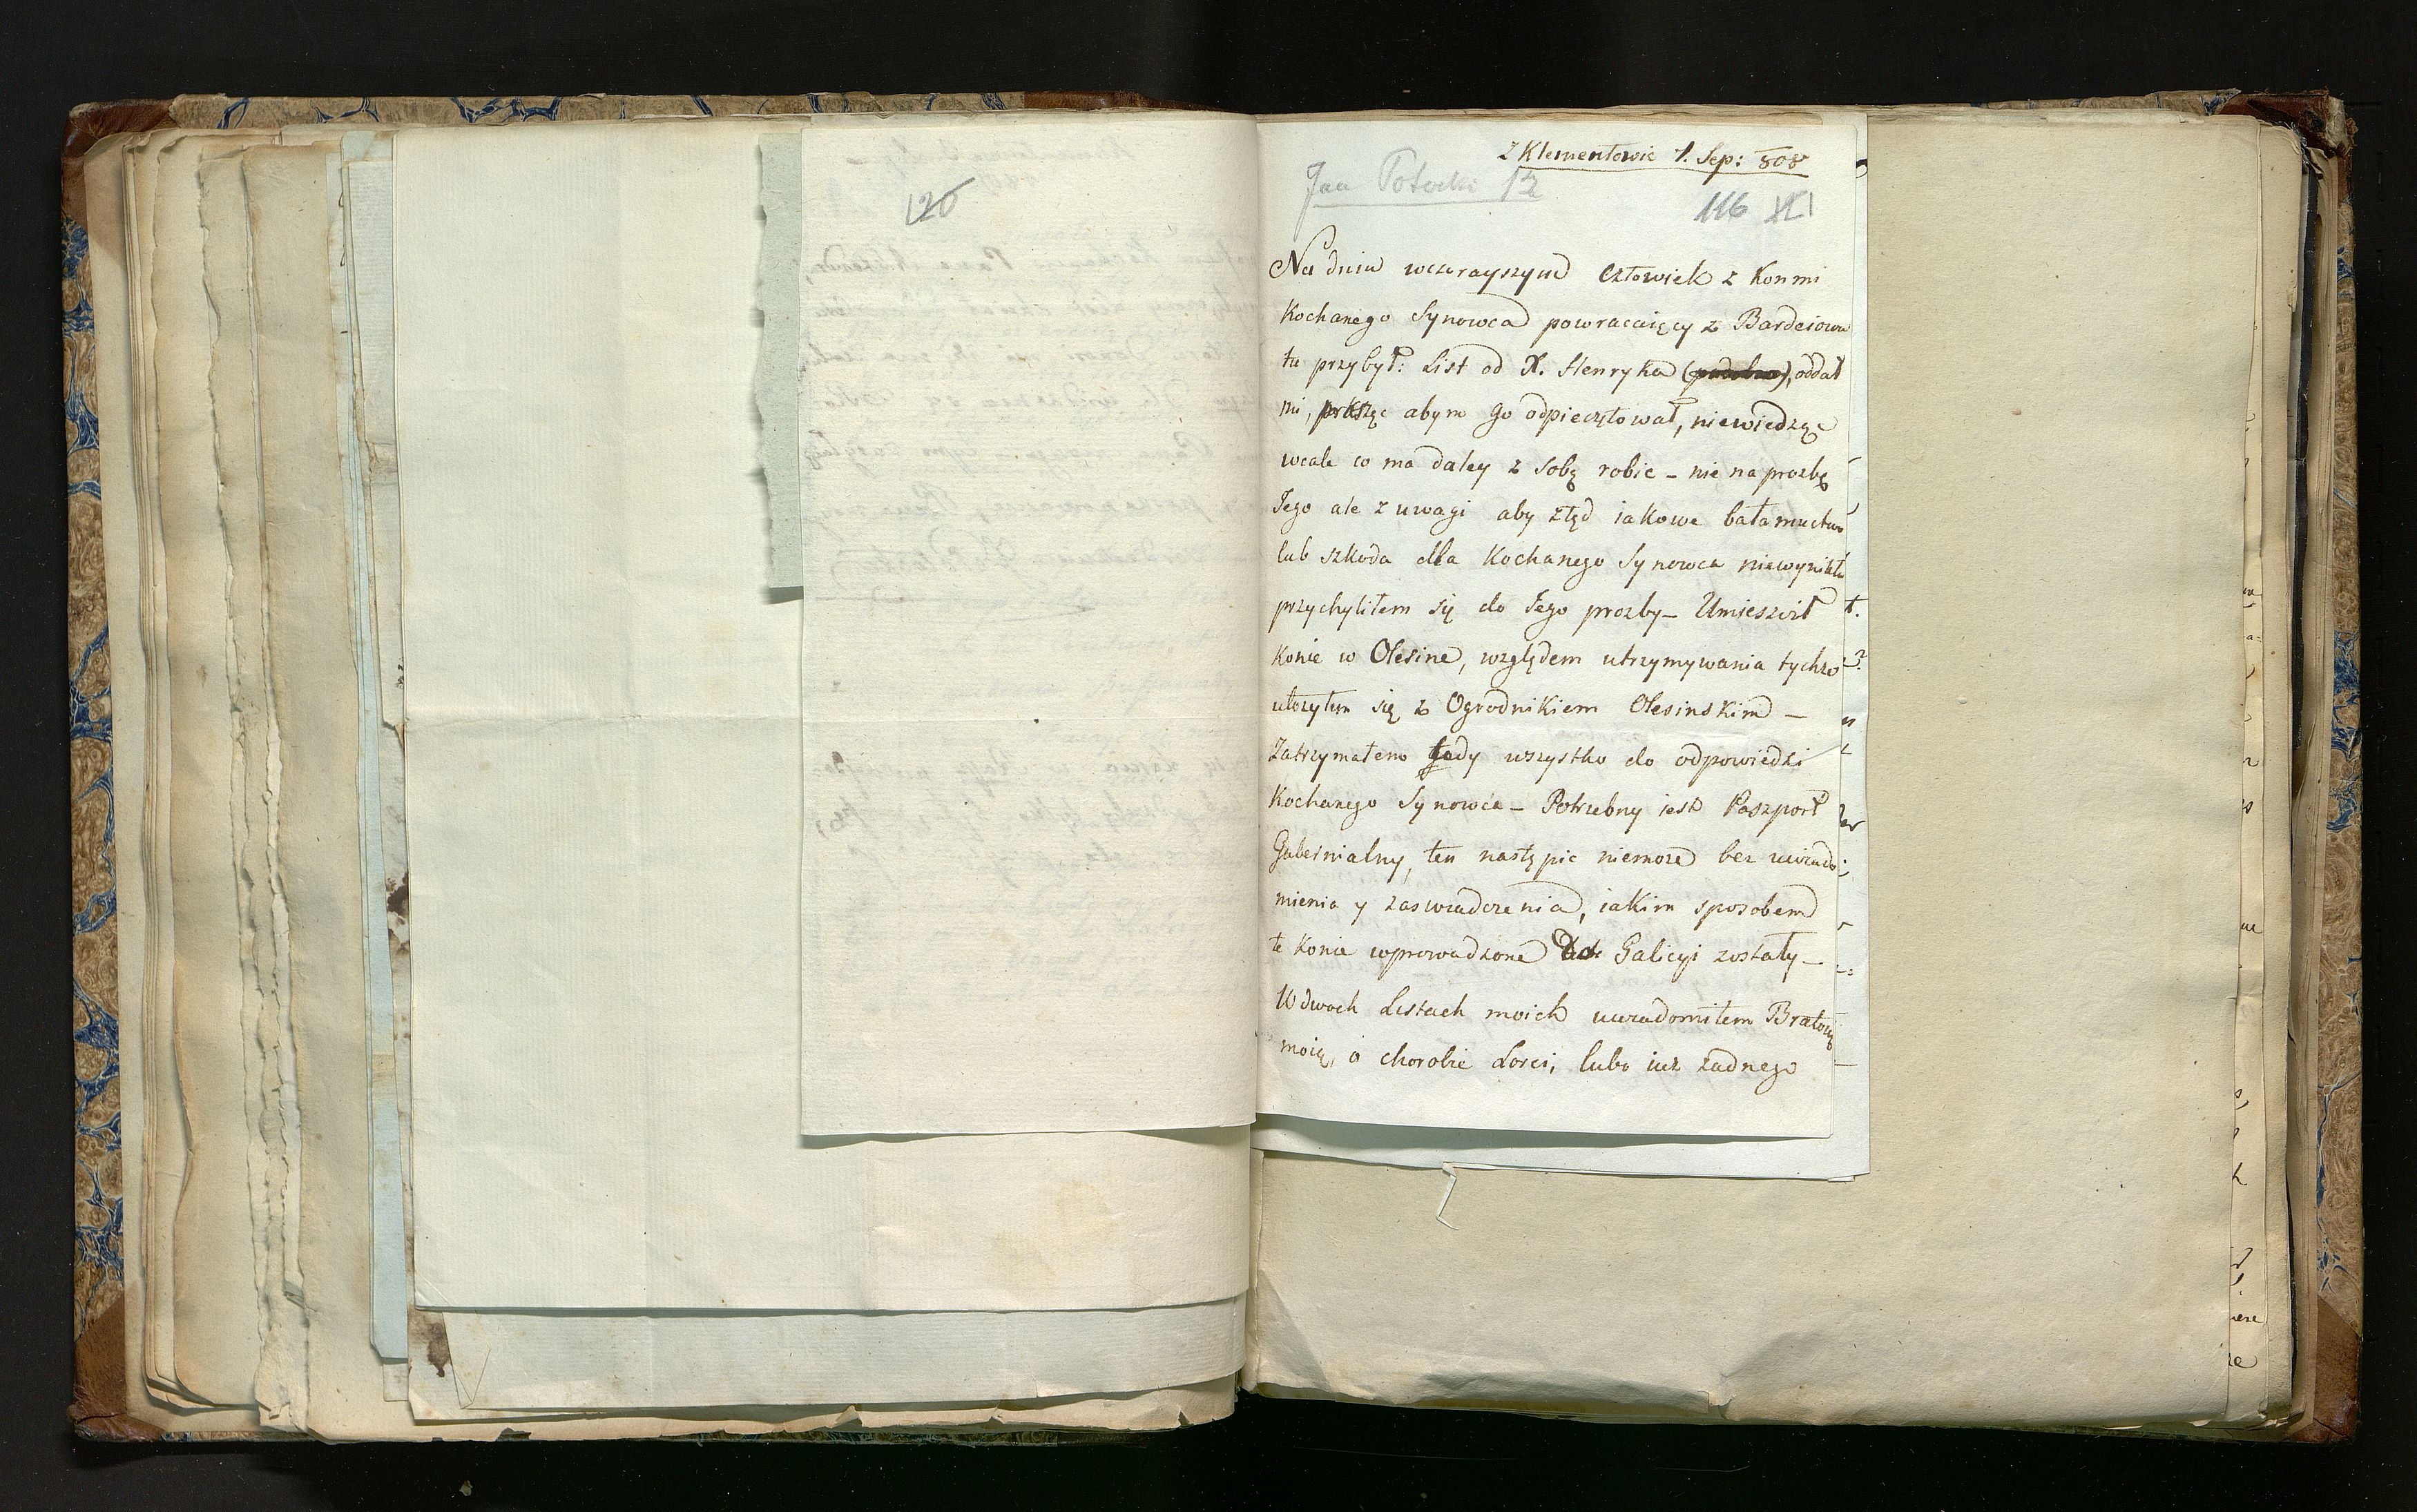 126
Z Klementowic 1. Sep: 808
Jan Potocki 12
116
Na dniu wczorayszym Człowiek z Konmi
Kochanego Synowca powracaiący z Bardeiowa
tu przybył: List od X. Henryka oddał
mi, prosząc abym go odpieczętował, niewiedząc
wcale co ma daley z sobą robic – nie na prozbę
Jego ale z uwagi aby ztąd iakowe bałamuctwo
lub szkoda dla Kochanego Synowca niewynikła
przychyliłem się do Jego prozby – Umiescił
Konie w Olesine, względem utrzymywania tychze
ułozyłem się z Ogrodnikiem Olesinskim –
Zatrzymałem tedy wszystko do odpowiedzi
Kochanego Synowca – Potrzebny iest Paszport
Gubernialny, ten nastąpic niemoze bez uwiado:
mienia y zaswiadczenia, iakim sposobem
te Konie wprowadzone do Galicyi zostały –
W dwoch Listach moich uwiadomiłem Bratową
moią, o chorobie Losci, lubo iuz zadnego